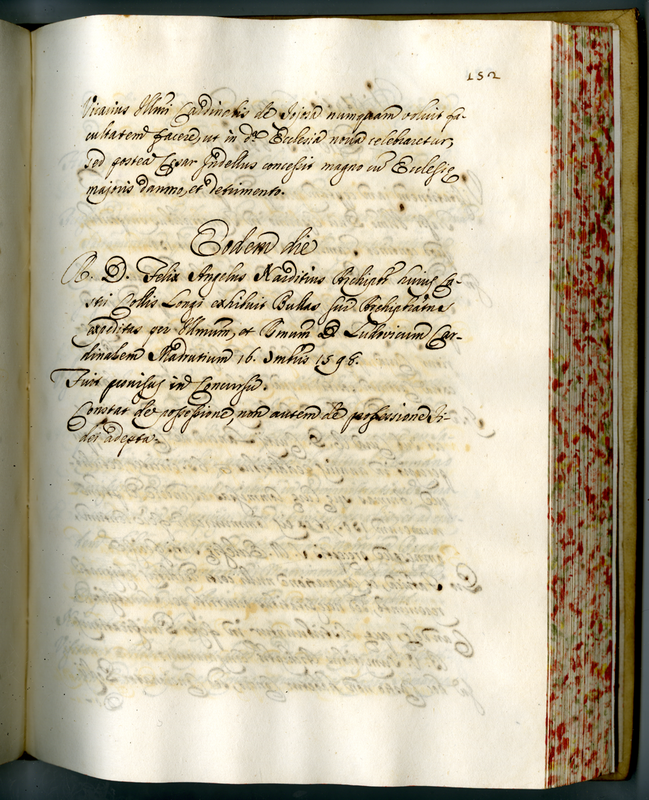 152
Vicarius Illmi Cardinalis de Joiosa nunquam voluit fa-
cultatem facere, ut in dª Ecclesia nova celebraretur,
sed postea Cesar Fidellus concessit magno cū Ecclesię
majoris damno, et detrimento.
Eodem die
R. D. Felix Angelus Narditius Archipbr huius Ca-
stri Collis Longi exhibuit Bullas sui Archipbratus
expeditas per Illmum, et Rmum D. Ludovicum Car-
dinalem Madrutium 16. 1596.
Fuit provisus in Concursu.
Constat de possessione, non autem de professione fi-
dei adepta.